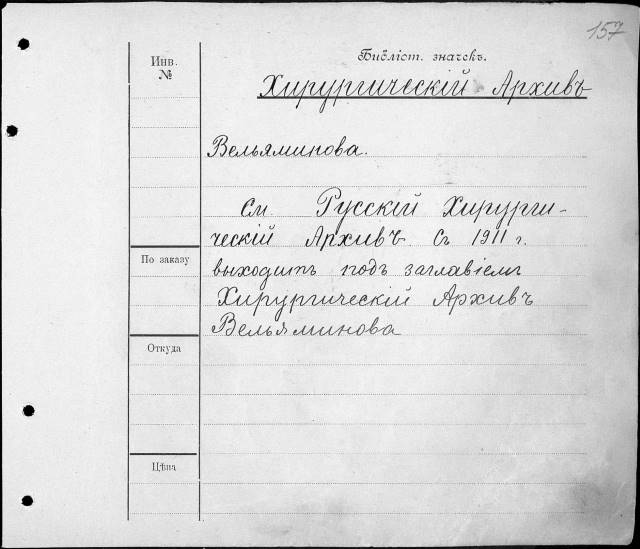 157
Библіот. значекъ.
Инв.
№
Хирургическій Архивъ
Вельяминова.
См. Русскій Хирурги-
ческій Архивъ. Съ 1911 г.
выходитъ подъ заглавіемъ
Хирургическій Архивъ
Вельяминова
По заказу
Откуда
Цѣна